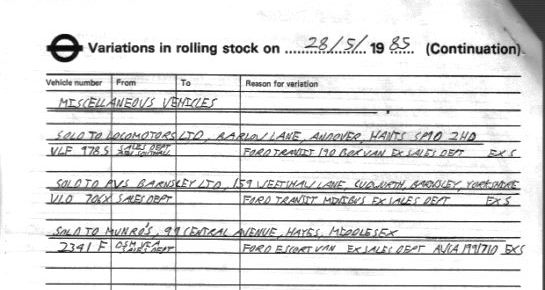 Variations in rolling stock on 28/5/ 1985. (Continuation)
Vehicle number From To Reason for variation
MISCELLANEOUS VEHICLES
SOLD TO LOCOMOTORS LTD, BARLOW LANE, ANDOVER, HANTS SP10 2HD
VLF 978S SALES DEPT FORD TRANSIT 190 BOX VAN EX SALES DEPT EX S
SOLD TO PVS BARNSLEY LTD, 159 WEETSHAW LANE, CUDWORTH, BARNSLEY, YORKSHIRE
VLO 706X SALES DEPT FORD TRANSIT MINIBUS EX SALES DEPT EX S
SOLD TO MUNRO'S, 99 CENTRAL AVENUE, HAYES, MIDDLESEX
2341 F SALES DEPT FORD ESCORT VAN EX SALES DEPT 199/710 EXS